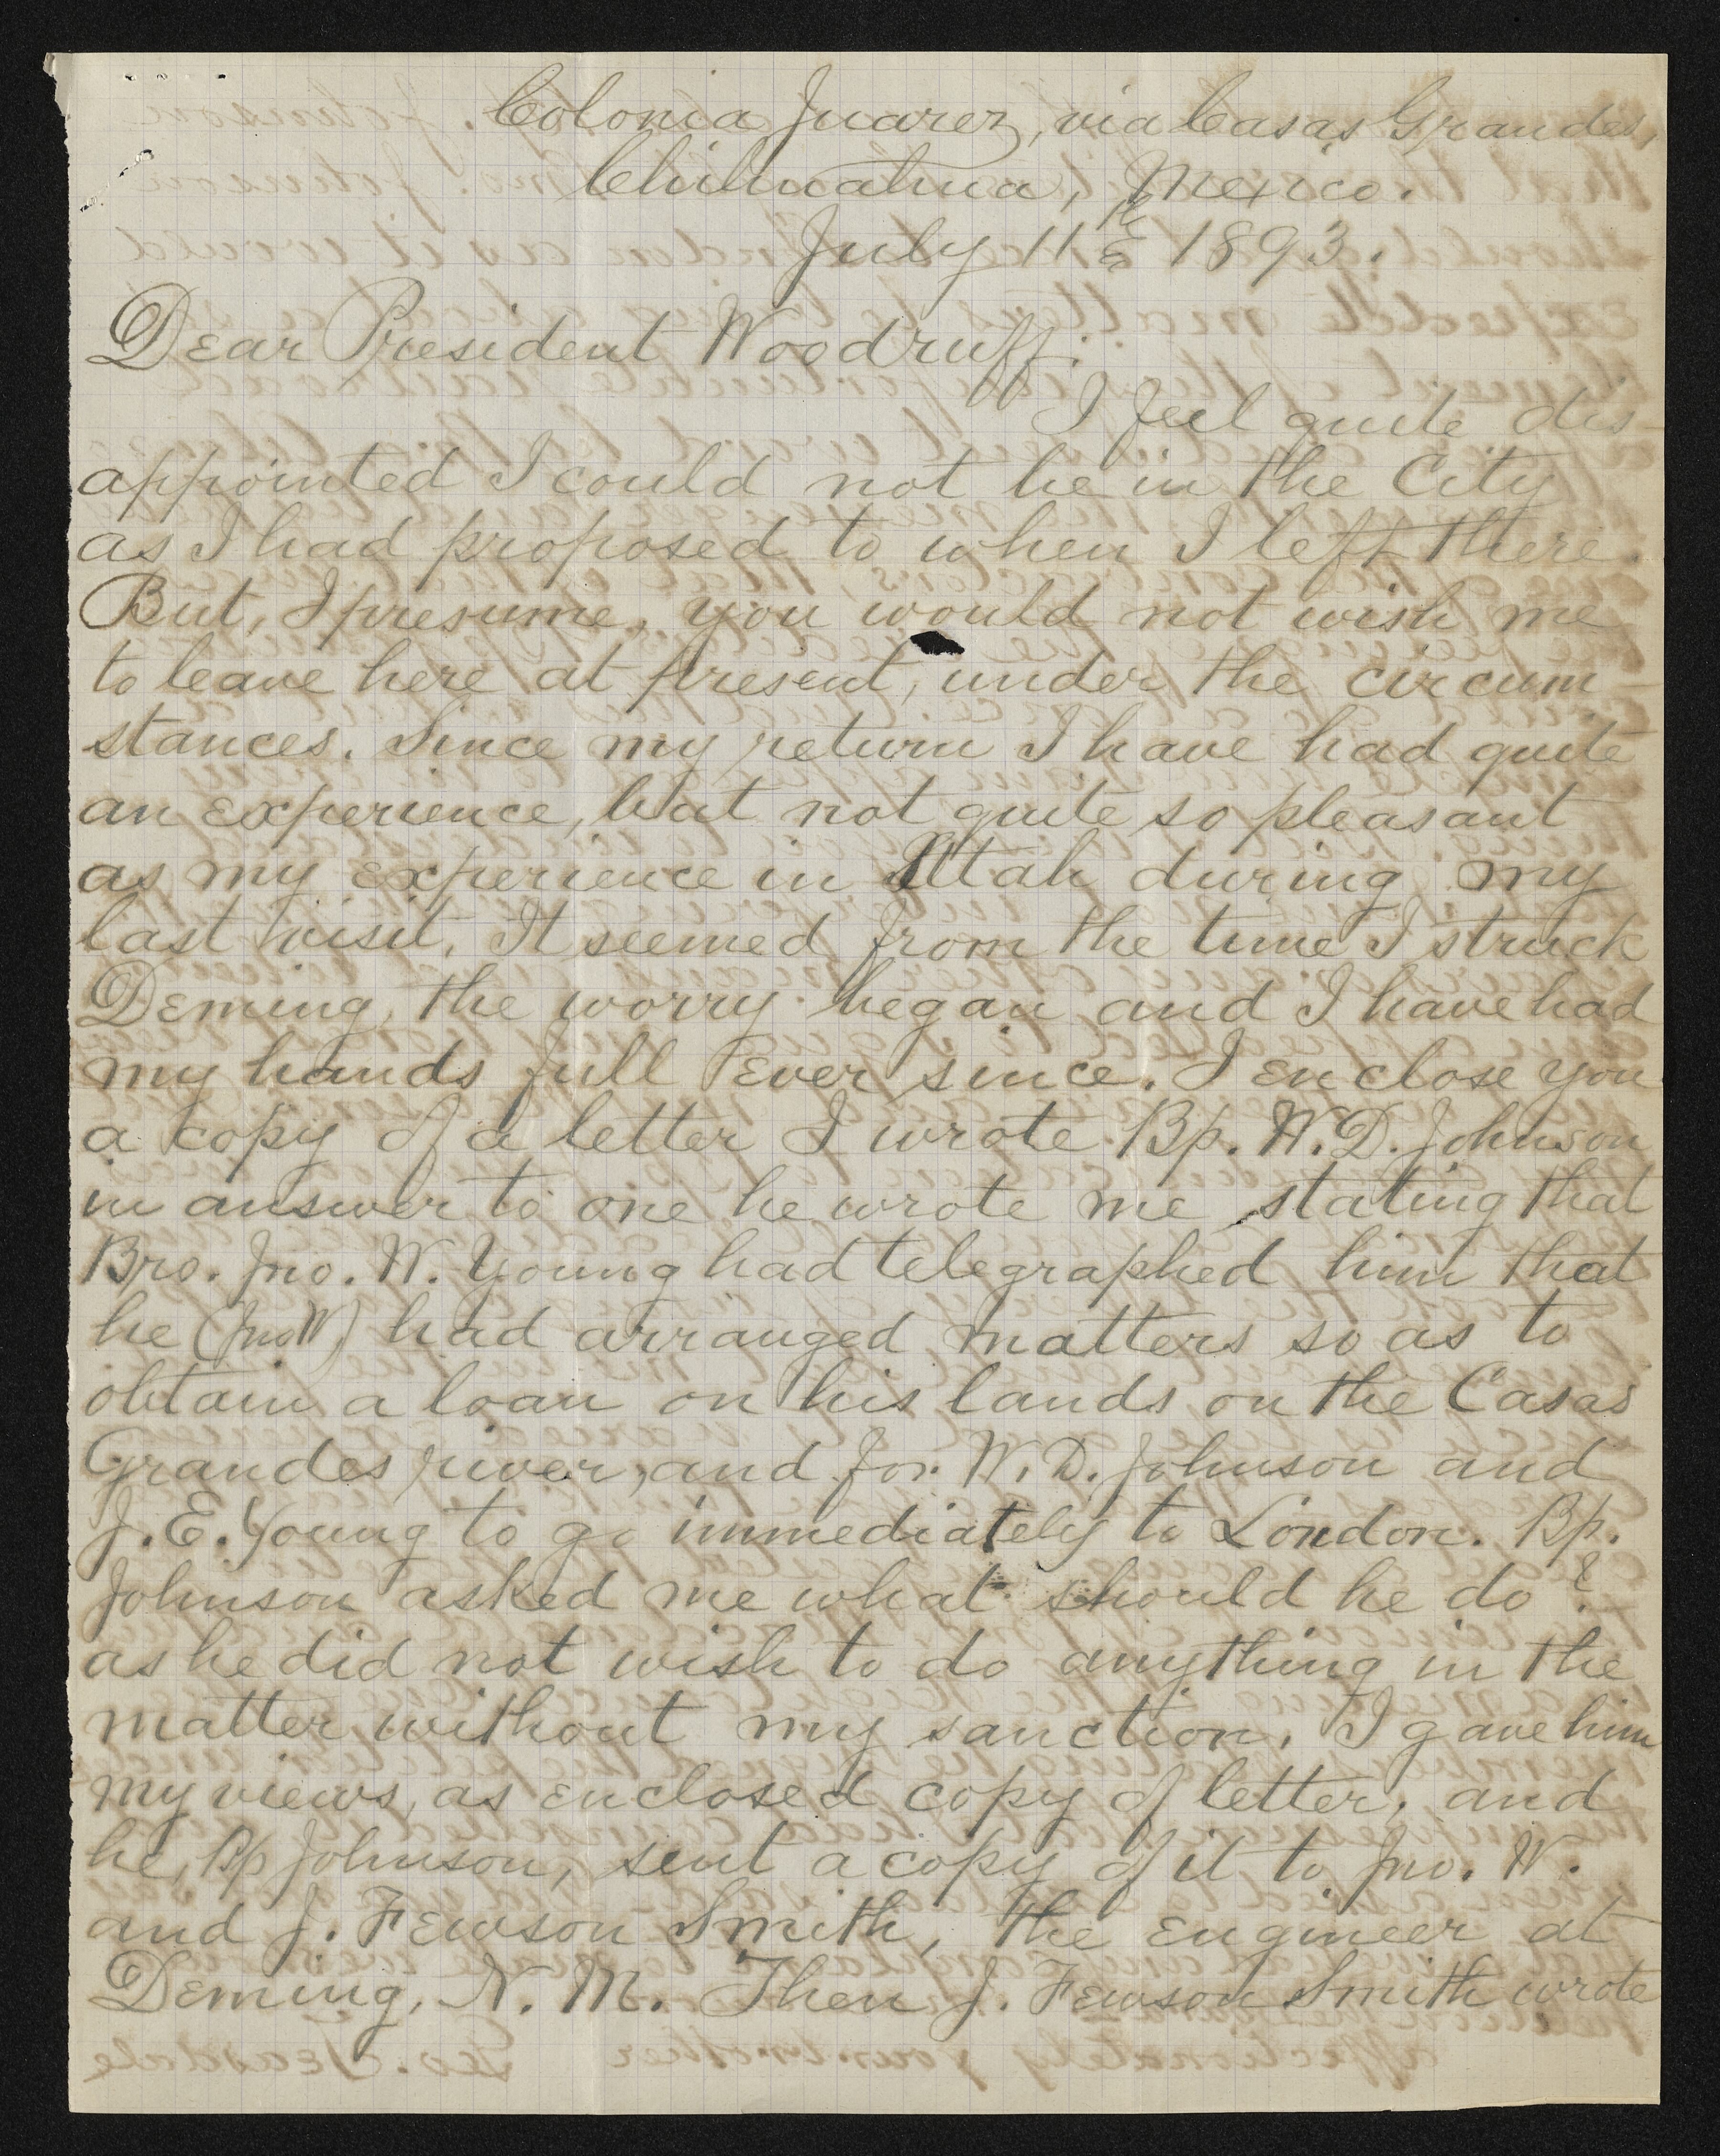 Colonia Juarez, via Casas Grandes,
Chihuahua, Mexico.
July 11th 1893.
Dear President Woodruff:
I feel quite dis-
appointed I could not be in the City
as I had proposed to when I left there.
But, I presume, you would not wish me
to leave here at present, under the circum-
stances. Since my return I have had quite
an experience, but not quite so pleasant
as my experience in Utah during my
last visit. It seemed from the time I struck
Deming, the worry began and I have had
my hands full ever since. I enclose you
a copy of a letter I wrote Bp. W. D. Johnson
in answer to one he wrote me stating that
Bro. Jno. W. Young had telegraphed him that
he (Jno W) had arranged matters so as to
obtain a loan on his lands on the Casas
Grandes river, and for W. D. Johnson and
J. E. Young to go immediately to London. Bp.
Johnson asked me what should he do?
as he did not wish to do anything in the
matter without my sanction. I gave him
my views, as enclosed copy of letter, and
he, Bp Johnson, sent a copy of it to Jno. W.
and J. Fewson Smith, the engineer at
Deming, N. M. Then J. Fewson Smith wrote